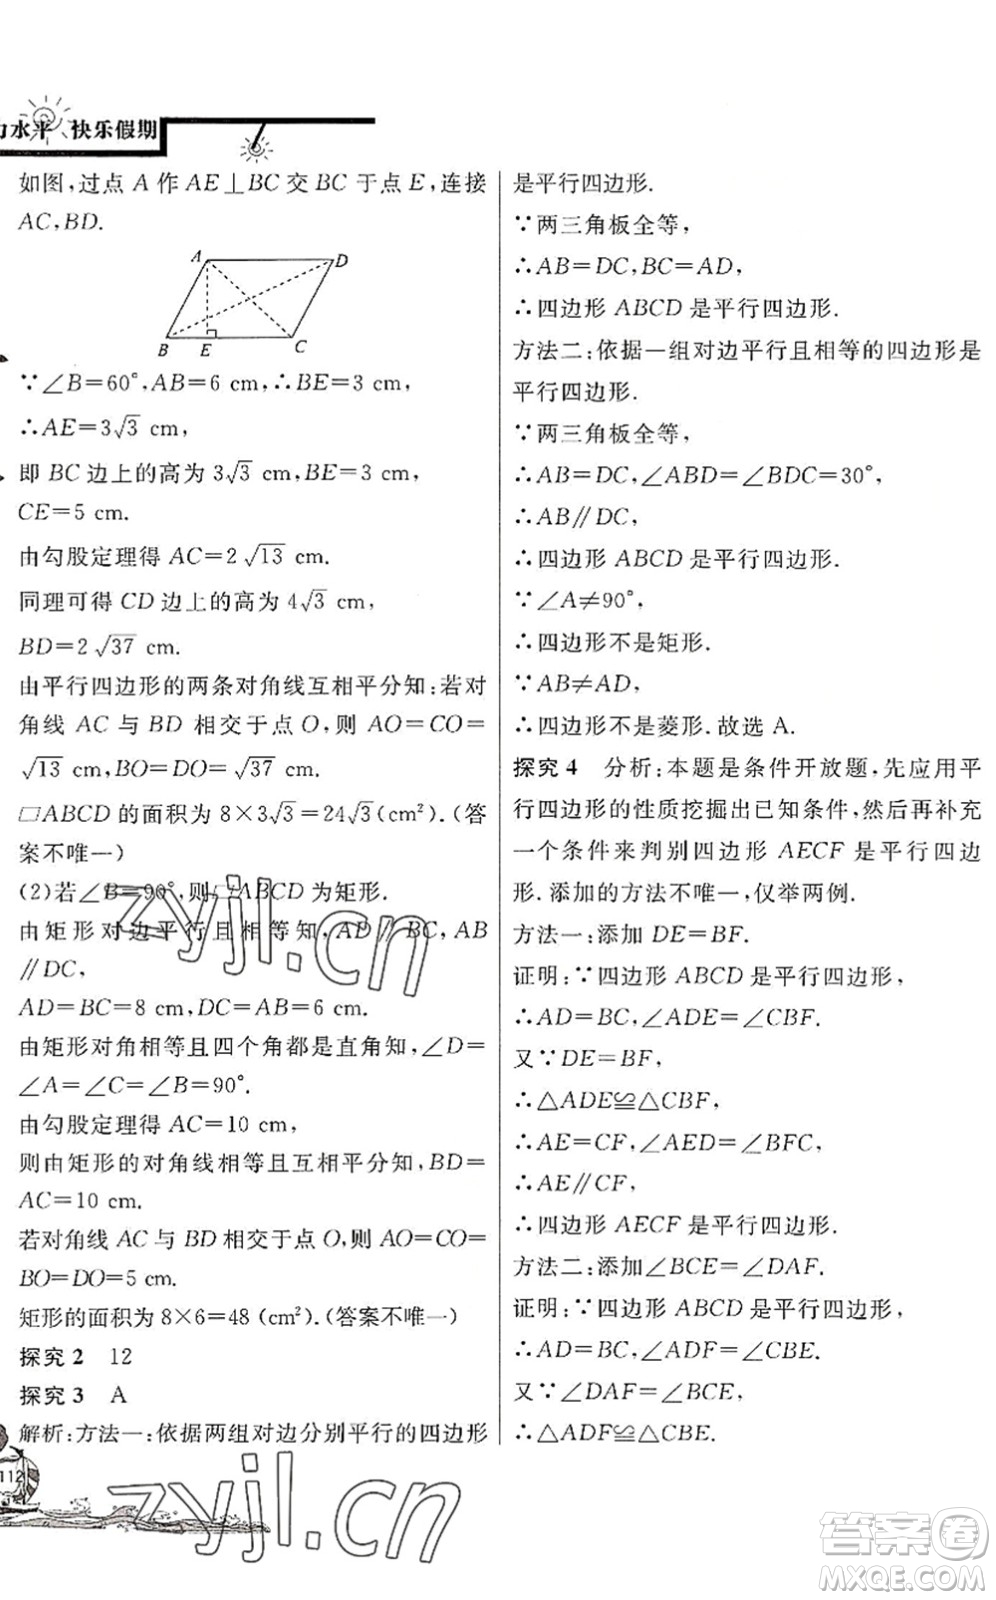 力水平、快乐假期
如图,过点 A 作 AE⊥BC 交 BC 于点 E,连接
AC,BD.
A
D
B
E
C
∵∠B=60°,AB=6 cm,∴BE=3 cm,
∴AE=3√3 cm,
即 BC 边上的高为 3√3 cm,BE=3 cm,
CE=5 cm.
由勾股定理得 AC=2√13 cm.
同理可得 CD 边上的高为 4√3 cm,
BD=2√37 cm.
由平行四边形的两条对角线互相平分知:若对
角线 AC 与 BD 相交于点 O,则 AO=CO=
√13 cm,BO=DO=√37 cm.
▱ABCD 的面积为 8×3√3=24√3(cm²).(答
案不唯一)
(2)若∠B=90°,则▱ABCD 为矩形.
由矩形对边平行且相等知,AD∥BC,AB
∥DC,
AD=BC=8 cm,DC=AB=6 cm.
由矩形对角相等且四个角都是直角知,∠D=
∠A=∠C=∠B=90°.
由勾股定理得 AC=10 cm,
则由矩形的对角线相等且互相平分知,BD=
AC=10 cm.
若对角线 AC 与 BD 相交于点 O,则 AO=CO=
BO=DO=5 cm.
矩形的面积为 8×6=48 (cm²).(答案不唯一)
探究 2 12
探究 3 A
解析:方法一:依据两组对边分别平行的四边形
112
是平行四边形.
∵两三角板全等,
∴AB=DC,BC=AD,
∴四边形 ABCD 是平行四边形.
方法二:依据一组对边平行且相等的四边形是
平行四边形.
∵两三角板全等,
∴AB=DC,∠ABD=∠BDC=30°,
∴AB∥DC,
∴四边形 ABCD 是平行四边形.
∵∠A≠90°,
∴四边形不是矩形.
∵AB≠AD,
∴四边形不是菱形.故选 A.
探究 4 分析:本题是条件开放题,先应用平
行四边形的性质挖掘出已知条件,然后再补充
一个条件来判别四边形 AECF 是平行四边
形.添加的方法不唯一,仅举两例.
方法一:添加 DE=BF.
证明:∵四边形 ABCD 是平行四边形,
∴AD=BC,∠ADE=∠CBF.
又∵DE=BF,
∴△ADE≌△CBF,
∴AE=CF,∠AED=∠BFC,
∴AE∥CF,
∴四边形 AECF 是平行四边形.
方法二:添加∠BCE=∠DAF.
证明:∵四边形 ABCD 是平行四边形,
∴AD=BC,∠ADF=∠CBE.
又∵∠DAF=∠BCE,
∴△ADF≌△CBE.
zyjl.cn
zyjl.cn
答案卷
MXQE.COM